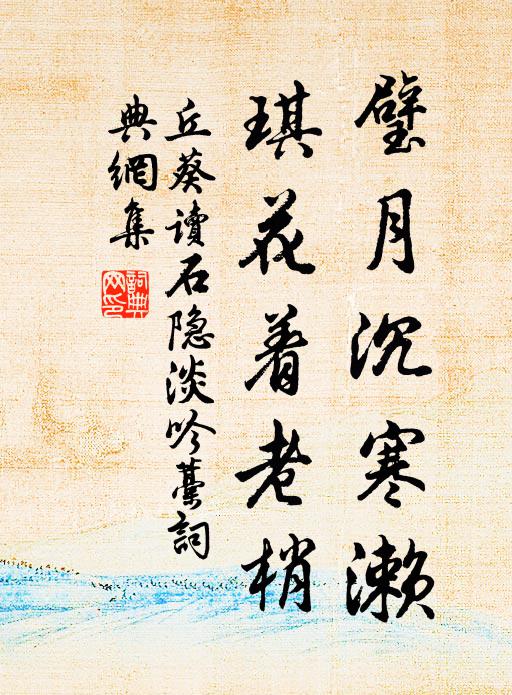 璧月沉寒濑
琪花着老梢
丘葵读石隐淡吟藁词
典網集
詞典網印